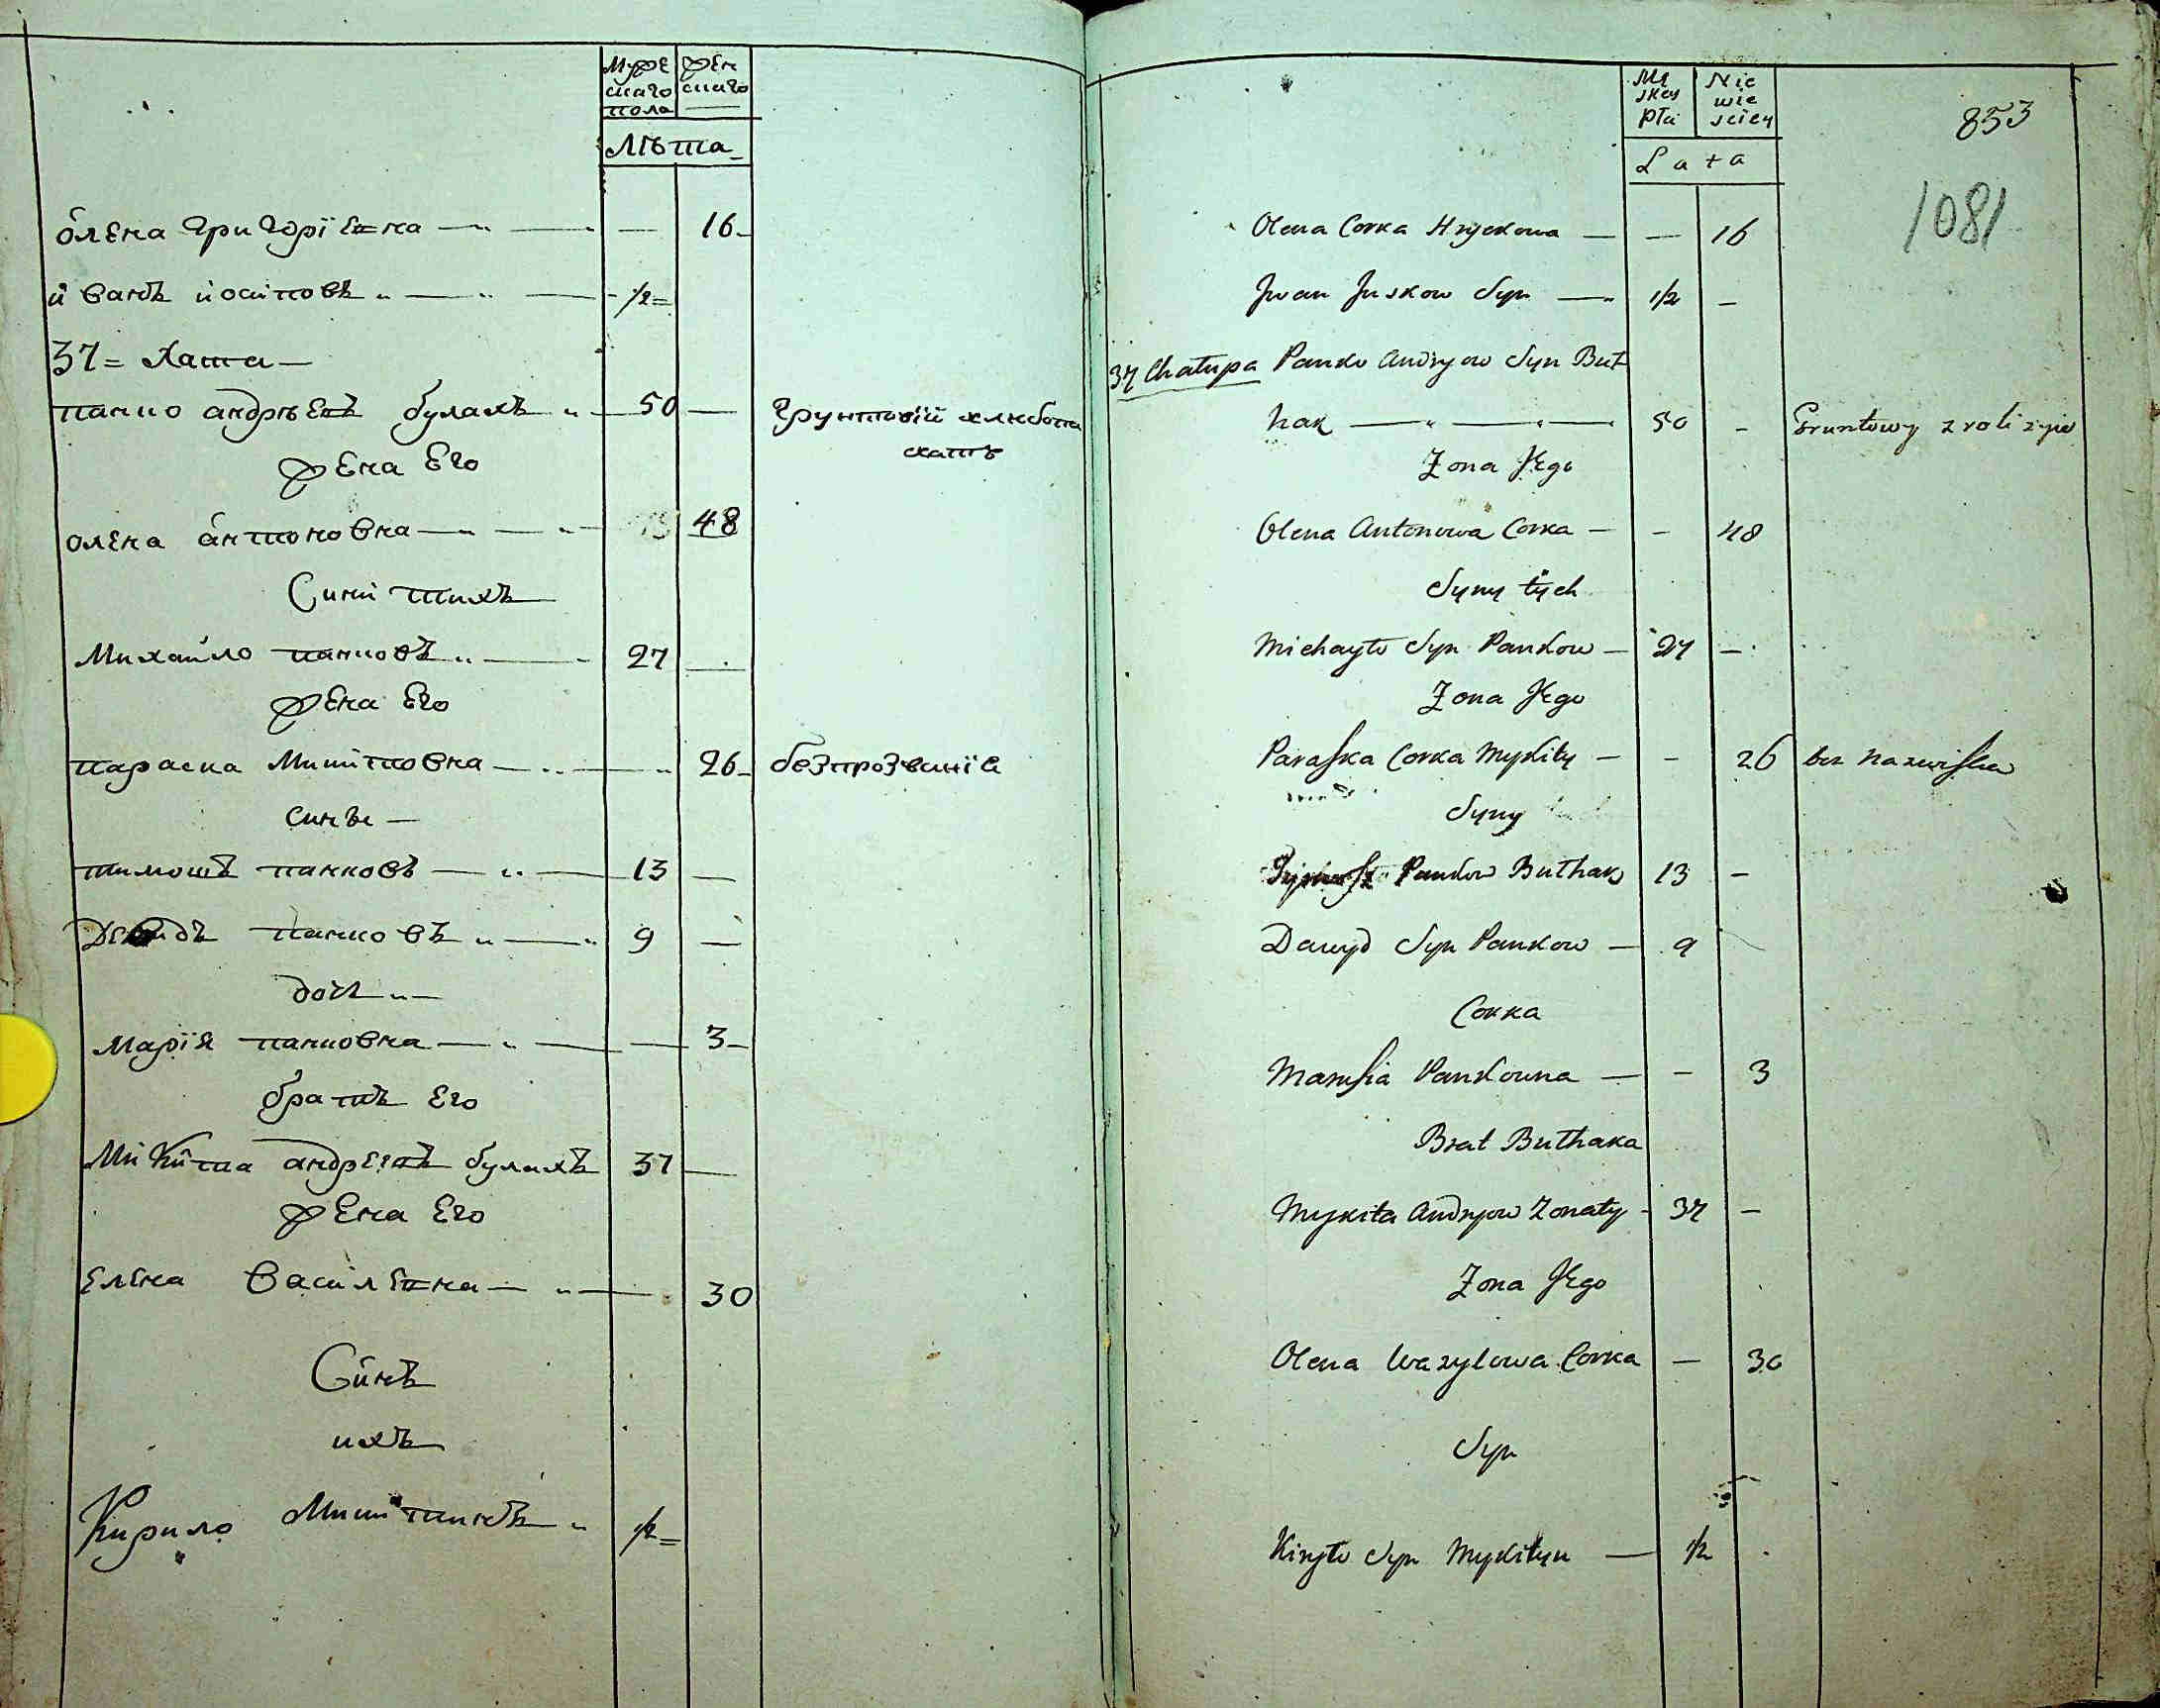 Муже
скаго
пола
жен
скаго
Лѣта
олена григорiевна 16
иванъ иосиповъ 1/2
37 = Хата
панко андрѣевъ булахъ 50 грунтовiй хлѣбопа
жена Его
олена антоновна 48
Сини тихъ
Михайло панковъ 27
жена Его
параска Микитовна 26 безпрозванiя
синъи
тимошъ панковъ 13
панковъ 9
дочъ
Марiя панковна 3
братъ Его
Микита андреевъ булахъ 37
жена Его
Елена Василевна 30
Синъ
ихъ
Кирило Микитинъ 1/2
853
1081
Mę
skey
płci
Nie
wie
sciey
Lata
Olena Corka Hryckowa — 16
Jwan Juskow Syn 1/2 —
37 Chałupa Panko Andryow Syn But
hak 50 — Gruntowy z roli zyie
Zona Jego
Olena Antonowa Corka — 48
Syny tych
Michayło Syn Pankow 27 —
Zona Jego
Paraska Corka Mykity — 26 bez nazwiska
Syny
Pankow Buthak 13 —
Dawyd Syn Pankow 9
Corka
Marusia Pankowna — 3
Brat Buthaka
Mykita Andryow Zonaty 37 —
Zona Jego
Olena Wasylowa Corka — 30
Syn
Kiryło Syn Mykityn 1/2